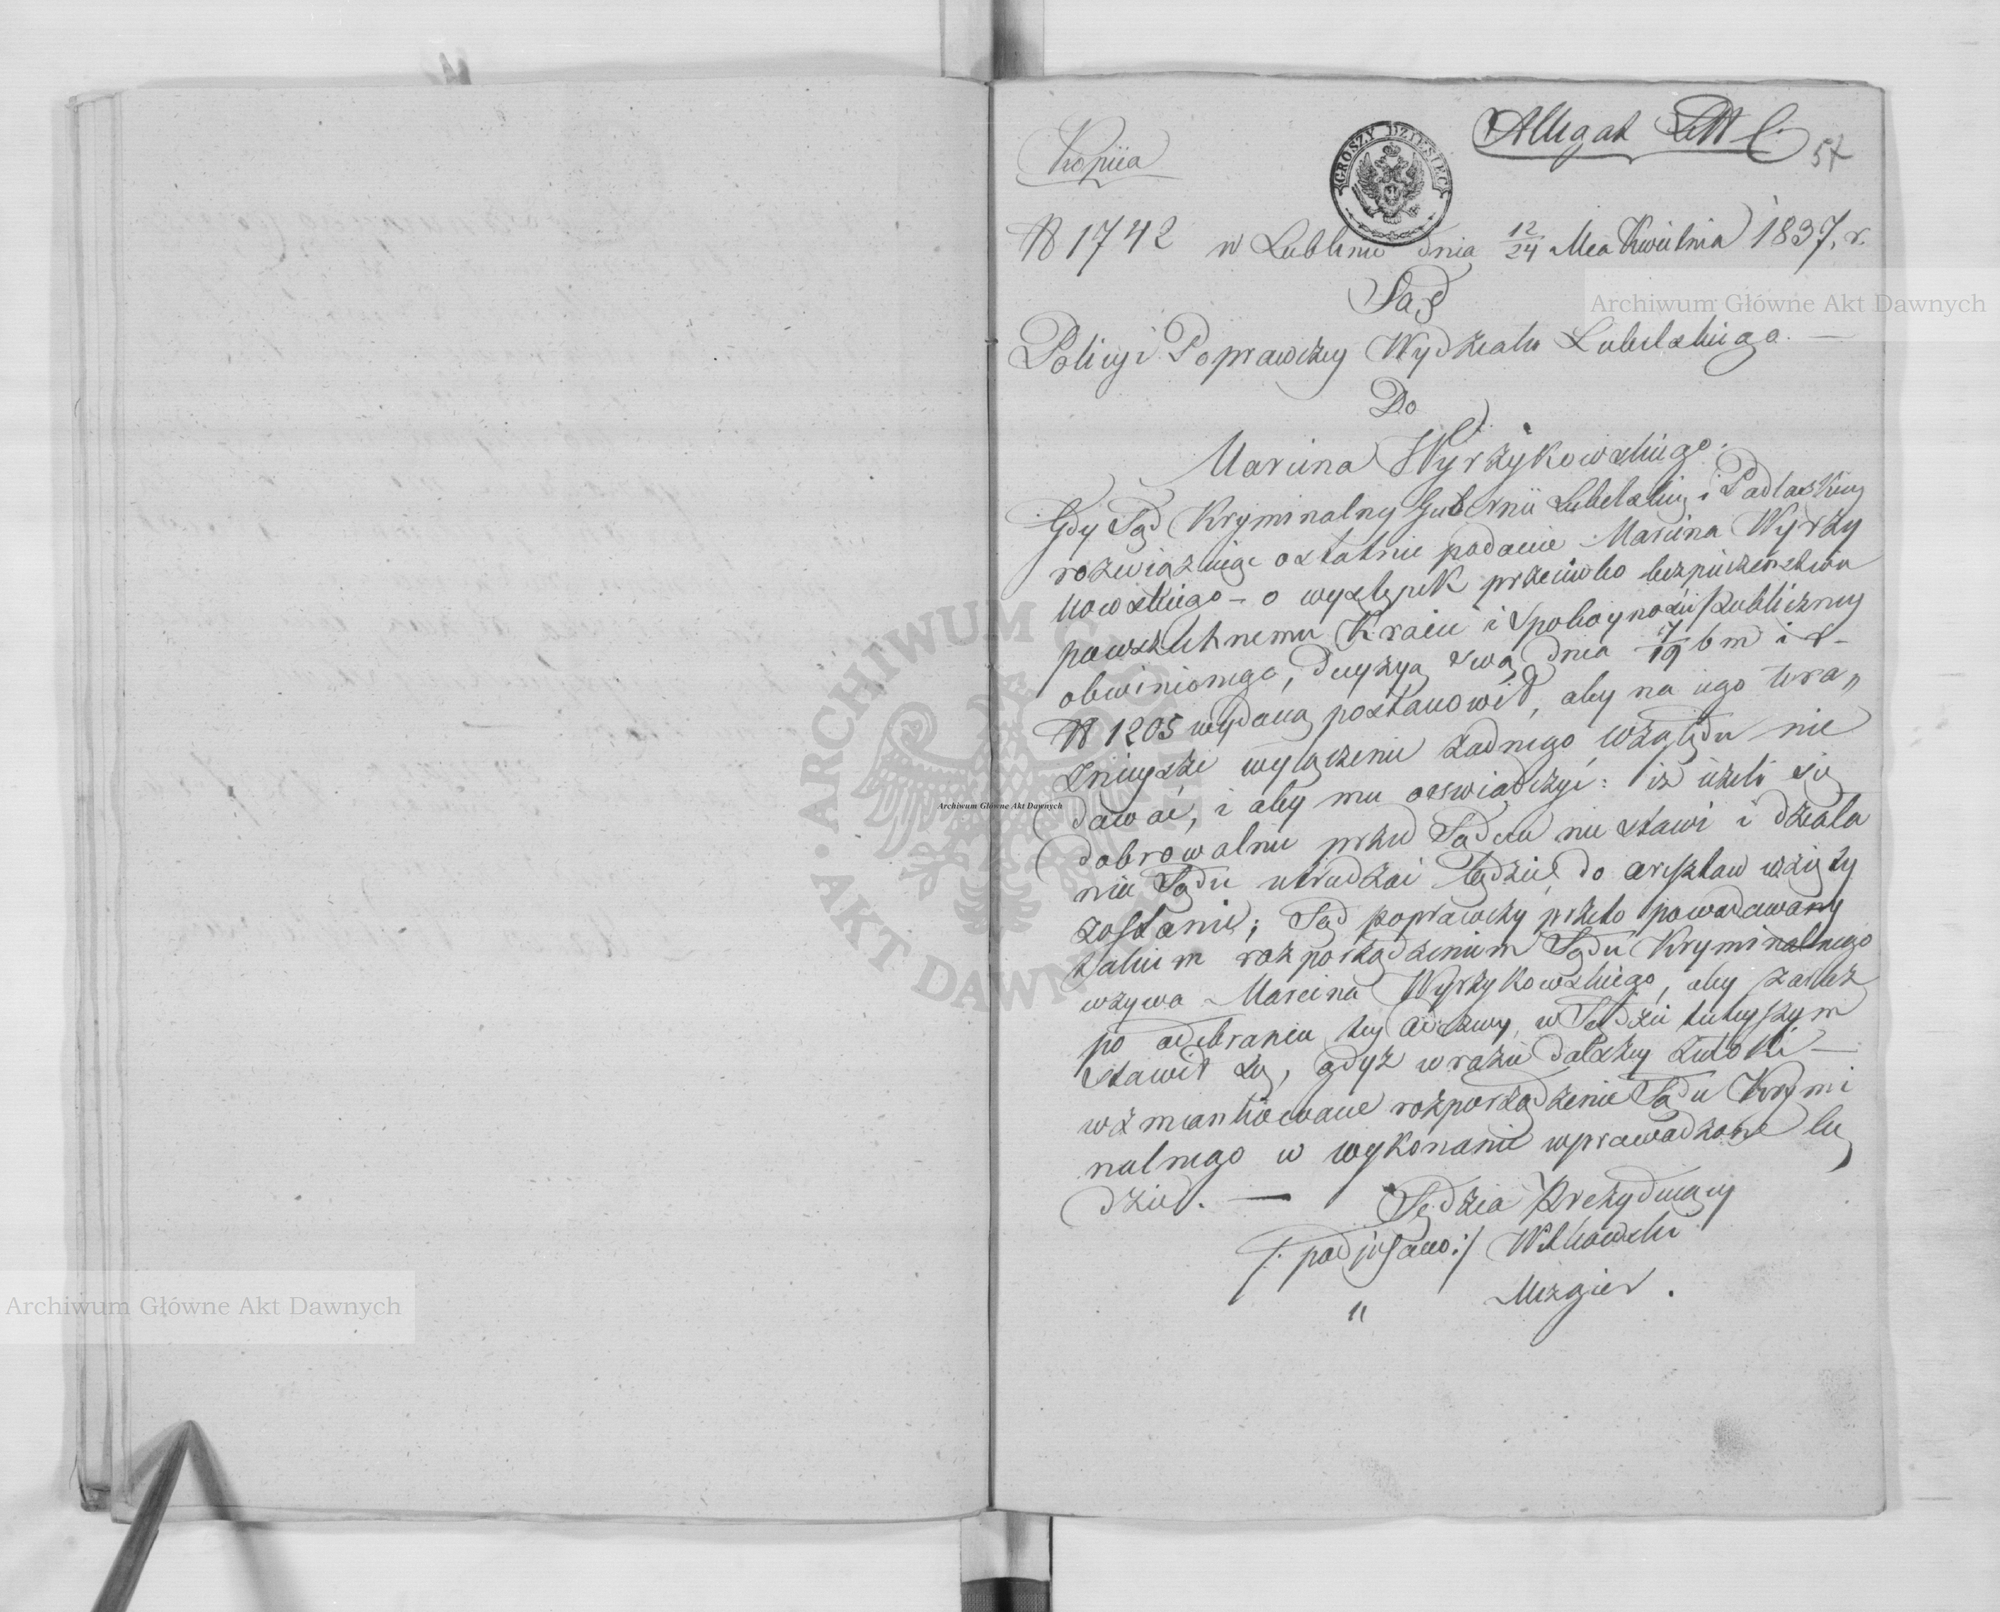 Kopiia
GROSZY DZIESIEC
Allegat Litt C.
57
N 1742 w Lublinie dnia 12/24 Mca Kwietnia 1837, r.
Sąd
Policyi Poprawczey Wydziału Lubelskiego. —
Do
Marcina Wyrzykowskiego.
Gdy Sąd Kryminalny Gubernii Lubelskiey i Podlaskiey
rozwiązuiąc ostatnie podanie Marcina Wyrzy
kowskiego – o występek przeciwko bezpieczeństwu
powszechnemu Kraiu i Spokoyności Publiczney
obwinionego, decyzyą swą dnia 7/19 b m i r –
N 1205 wydaną postanowił, aby na iego tera„
znieysze wyłączenie żadnego względu nie
dawać, i aby mu oświadczyć: iż ieżeli się
dobrowolnie przed Sądem nie stawi i działa
nia Sądu utrudzać będzie, do aresztu wzięty
zostanie; Sąd poprawczy przeto powodowany
takiem rozporządzeniem Sądu Kryminalnego
wzywa Marcina Wyrzykowskiego, aby zaraz
po odebraniu tey odezwy, w Sądzie tuteyszym
stawił się, gdyż w razie dalszey zwłoki —
wzmiankowane rozporządzenie Sądu Krymi
nalnego w wykonanie wprowadzone bę
dzie. — Sędzia Prezyduiący
/: podpisano:/ Witkowski
" Mezgier.
Archiwum Główne Akt Dawnych
Archiwum Główne Akt Dawnych
Archiwum Główne Akt Dawnych
ARCHIWUM GŁÓWNE · AKT DAWNYCH ·